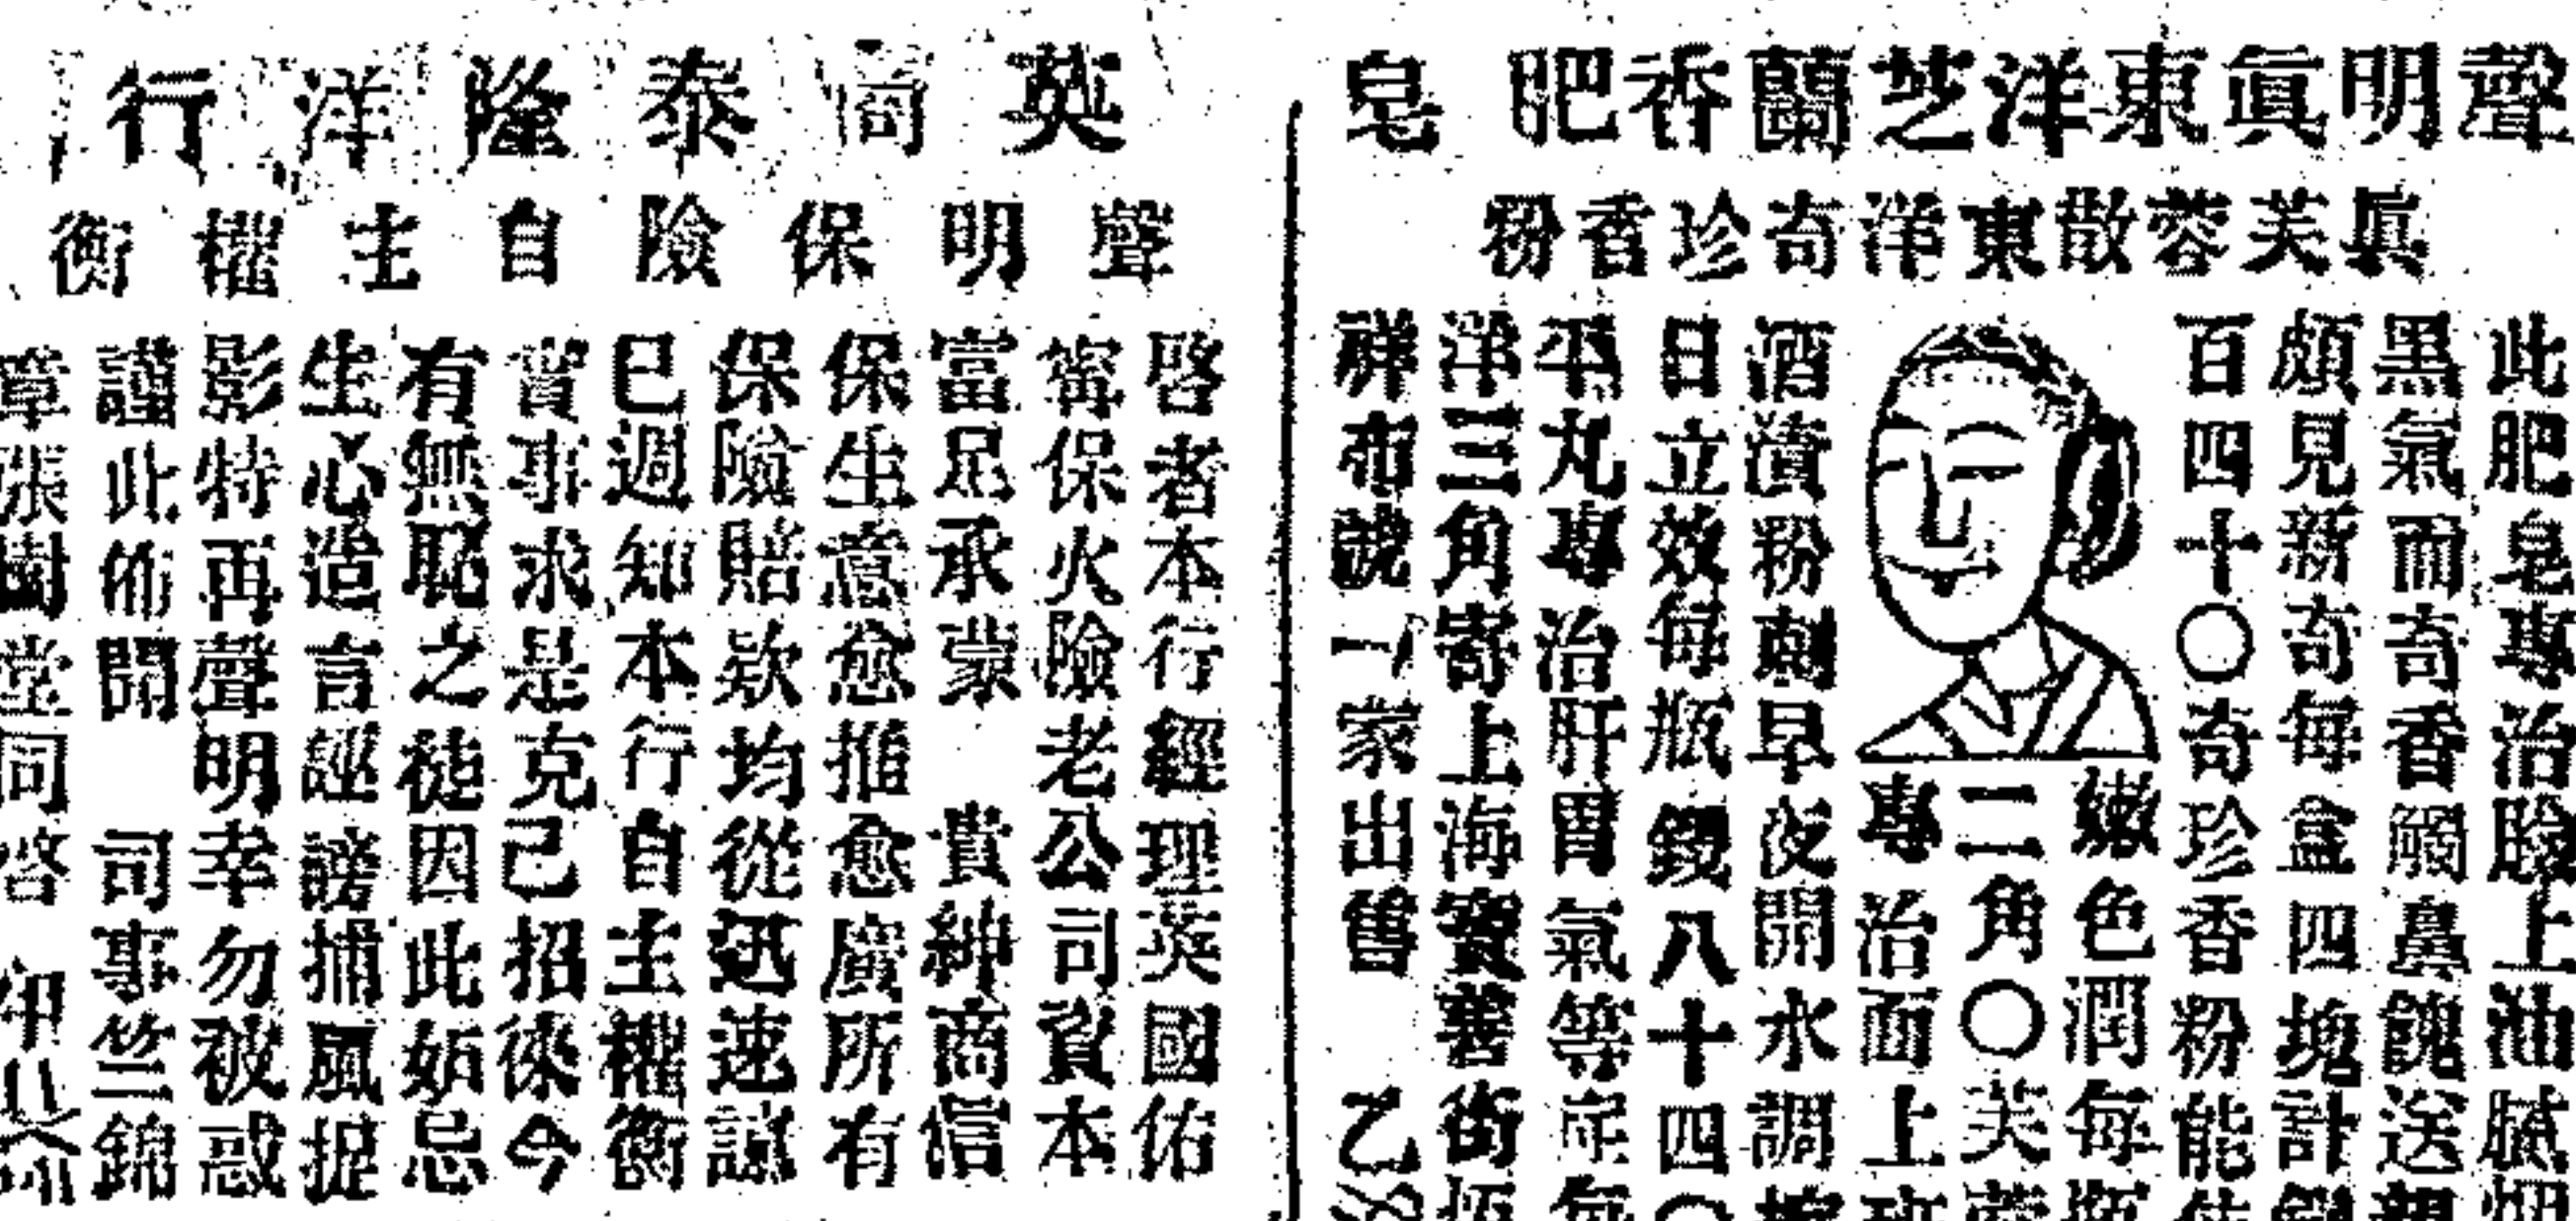 聲明眞東洋芝蘭香肥皂
眞芙蓉散東洋奇珍香粉
此肥皂專治臉上油膩
黑氣而奇香觸鼻餽送親
頗見新奇每盒四塊計
百四十〇奇珍香粉能
嫩色潤每瓶
二角〇芙蓉
專治面上斑
酒漬粉刺早夜開水調擦
日立效每瓶錢八十四〇
平丸專治肝胃氣等症每
洋三角寄上海寶善街
祥布號一家出售 乙
英商泰隆洋行
聲明保險自主權衡
啓者本行經理英國佑
甯保火險老公司資本
富足承蒙 貴紳商信
保生意愈推愈廣所有
保險賠欵均從迅速諒
已週知本行自主權衡
實事求是克己招徠今
有無恥之徒因此妬忌
生心造言誣謗捕風捉
影特再聲明幸勿被惑
謹此佈聞 司事竺錦
章張樹堂同啓